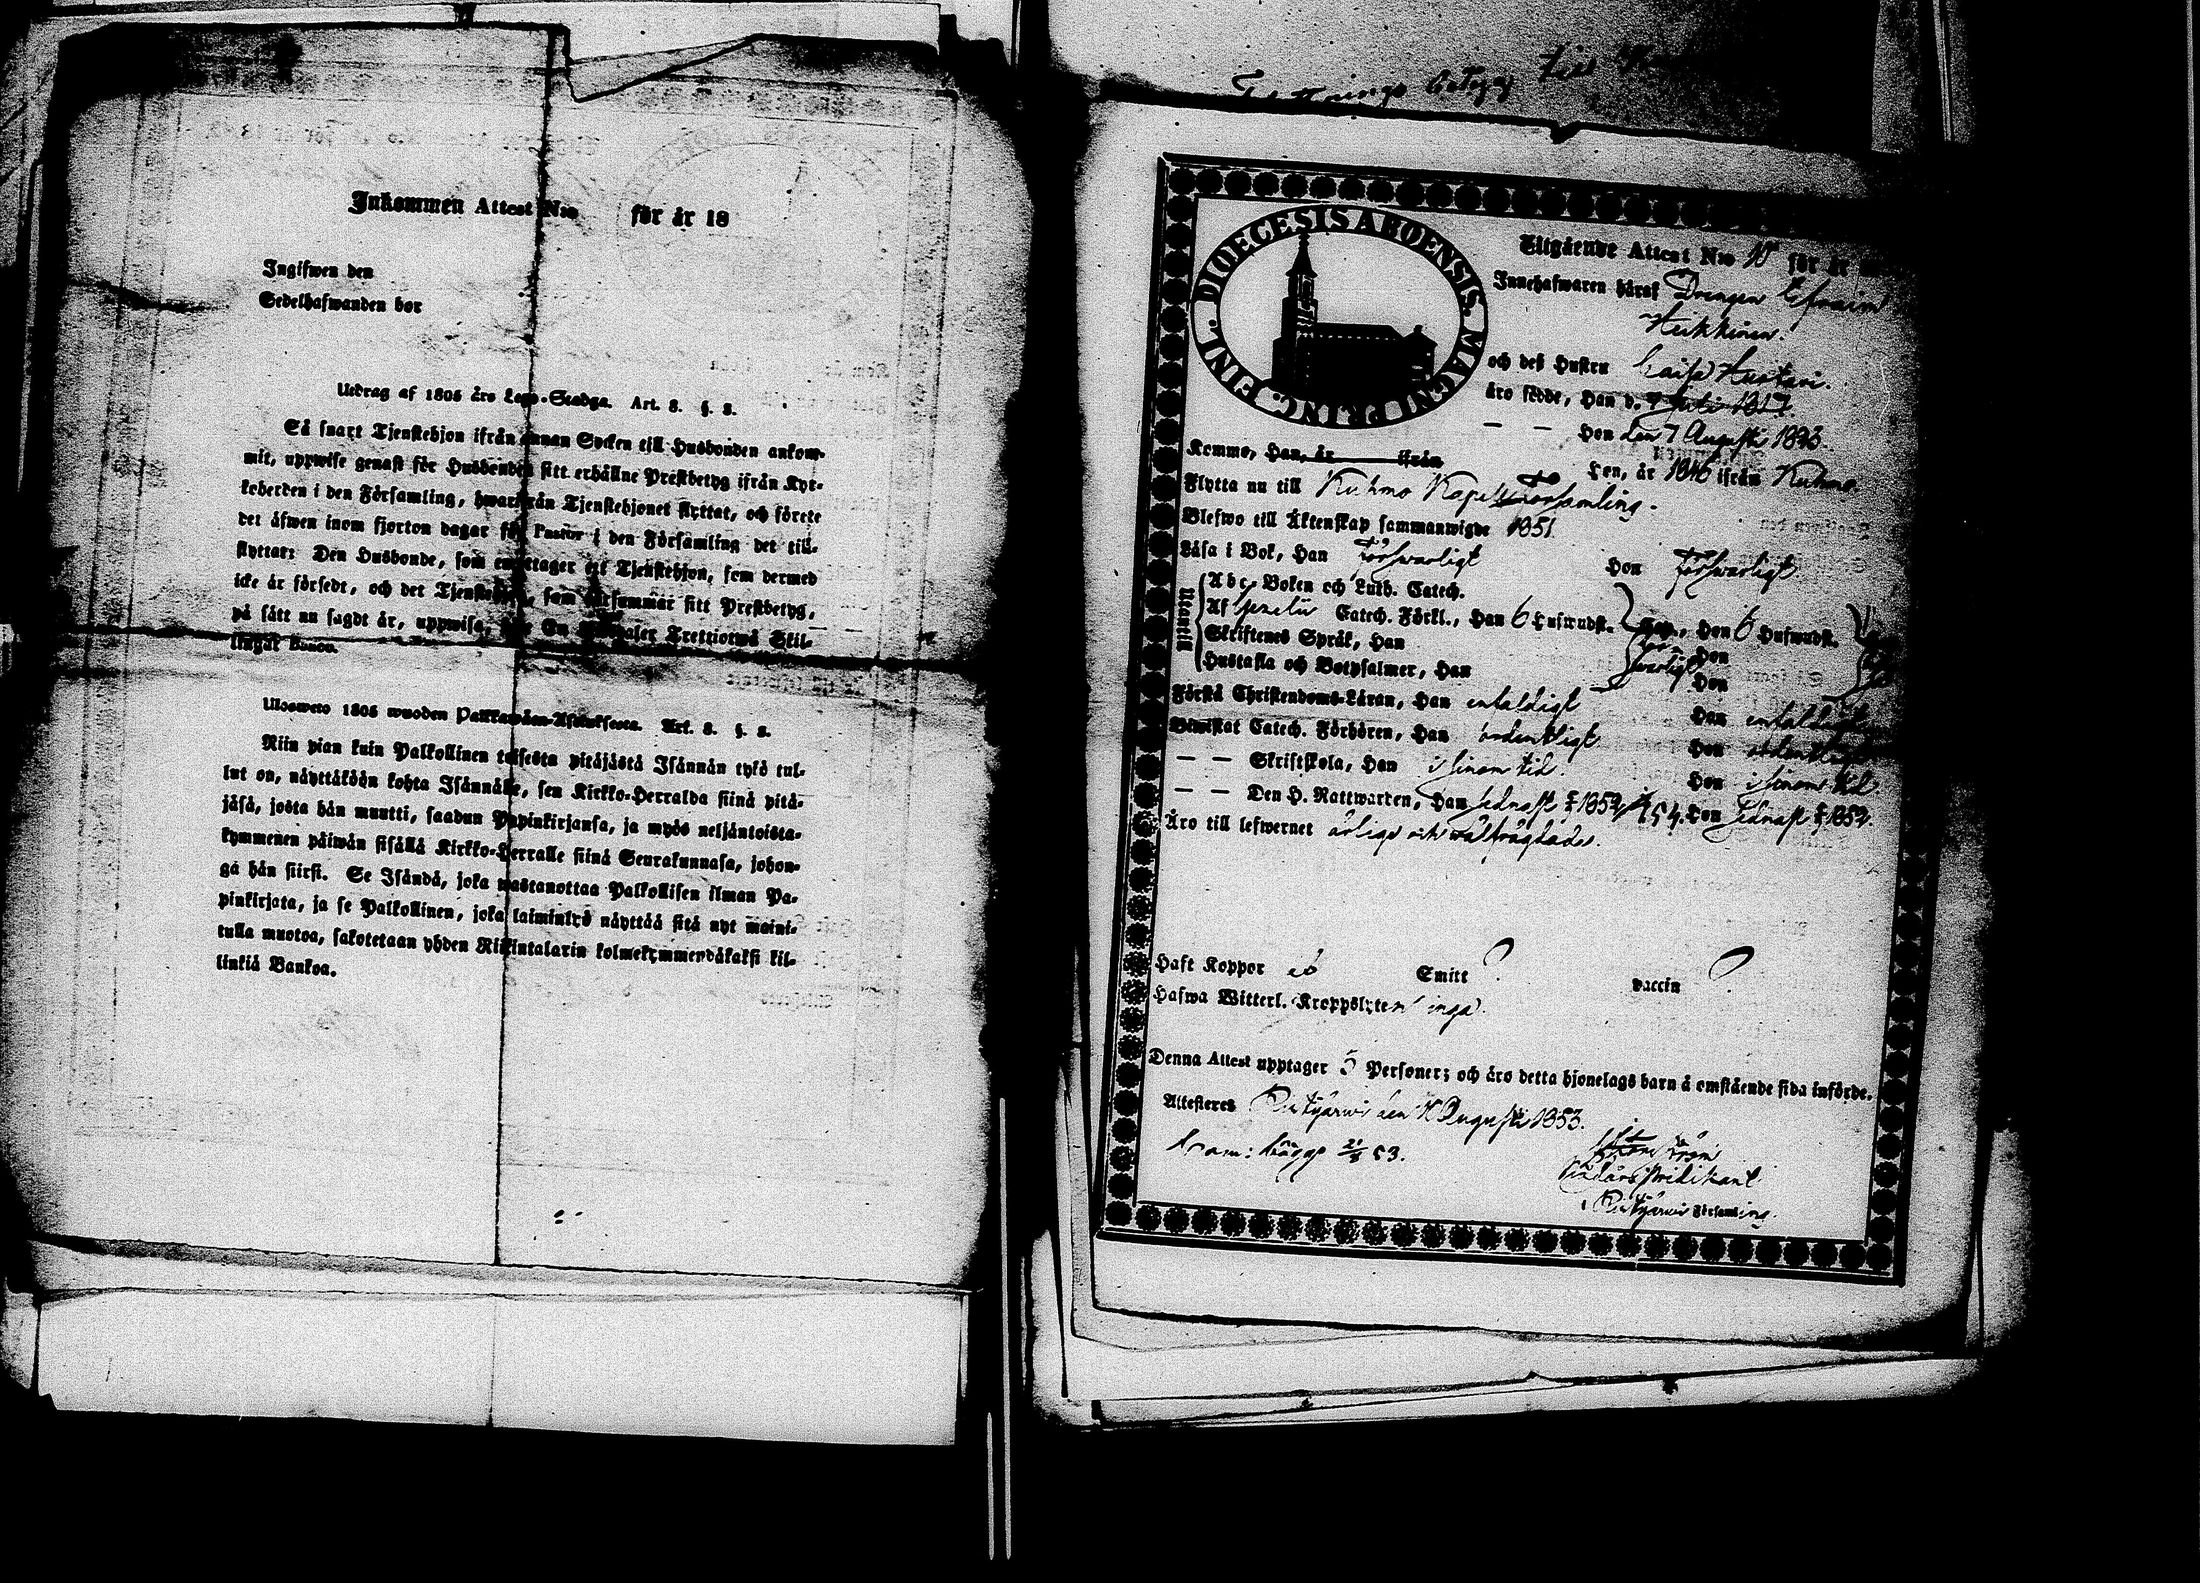 Inkommen Attest N:o för år 18
Ingifwen den
Sedelhafwanden bor
Utdrag af 1805 års Lego-Stadga. Art. 8. §. 8.
Så snart Tjenstehjon ifrån annan Socken till Husbonden ankom-
mit, uppwise genast för Husbonden sitt erhållne Prestbetyg ifrån Kyr-
koherden i den Församling, hwarifrån Tjenstehjonet flyttat, och förete
det äfwen inom fjorton dagar för Pastor i den Församling det till-
flyttar: Den Husbonde, som emottager ett Tjenstehjon, som dermed
icke är försedt, och det Tjenstehjon, som försummar sitt Prestbetyg,
på sätt nu sagdt är, uppwisa, Trettiotwå Skil-
lingar Banco.
Ulosweto 1805 wuoden Palkkawäen-Asetuksesta. Art. 8. §. 8.
Niin pian kuin Palkollinen toisesta pitäjästä Isännän tykö tul-
lut on, näyttäköön kohta Isännälle, sen Kirkko-Herralda siinä pitä-
jäsä, josta hän muutti, saadun Papinkirjansa, ja myös neljäntoista-
kymmenen päiwän sisällä Kirkko-Herralle siinä Seurakunnasa, johon-
ga hän siirsi. Se Isändä, joka wastanottaa Palkollisen ilman Pa-
pinkirjata, ja se Palkollinen, joka laiminlyö näyttää sitä nyt maini-
tulla muotoa, sakotetaan yhden Riikintalarin kolmekymmendäkaksi kil-
linkiä Bankoa.
Flyttnings betyg till
DIOECESIS ABOENSIS. MAGNI PRINC. FINL.
Utgående Attest N:o 18 för år
Innehafwaren häraf Drengen Efraim
Heikkinen.
och deß Hustru Caisa Huotari.
äro födde, Han d. 7 Juli 1817.
— — Hon den 7 Augusti 1823.
Kommo, Han, år ifrån Hon, år 1846 ifrån Kuhmo.
Flytta nu till Kuhmo Kapell Församling.
Blefwo till Äktenskap sammanwigde 1851
Läsa i Bok, Han Förswarligt Hon Förswarligt
Utantill Abc-Boken och Luth. Catech.
Af Catech. Förkl., Han 6 Hufwudst. Hon 6 Hufwudst.
Skriftenes Språk, Han Hon
Hustafla och Botpsalmer, Han Hon
Förstå Christendoms-Läran, Han enfaldigt Hon enfaldigt
Biwistat Catech. Förhören, Han ordentligt Hon ordentligt
— — Skriftskola, Han i sinom tid. Hon i sinom tid
— — Den H. Nattwarden, Han sednast 1853 Hon sednast 1853.
Äro till lefwernet ärlige och wälfrägdade.
Haft Koppor ej Smitt ? vaccin ?
Hafwa Witterl. Kroppslyten inga.
Denna Attest upptager 5 Personer; och äro detta hjonelags barn å omstående sida införde.
Attesteres Ristijärwi den Augusti 1853.
53.
Ristijärwi Församling.